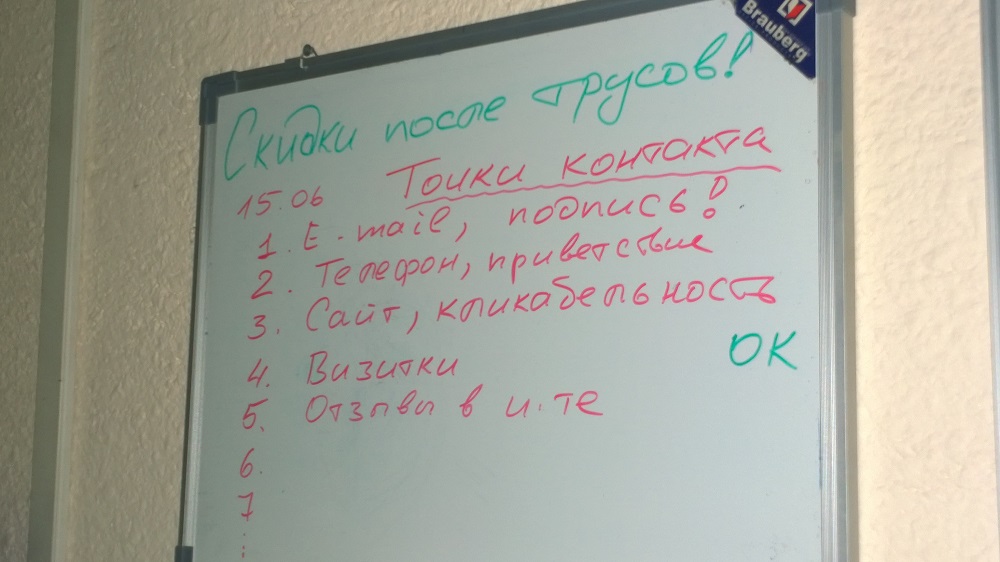 Brauberg
Скидки после трусов!
15.06 Точки контакта
1. E-mail, подпись!
2. Телефон, приветствие
3. Сайт, кликабельность
OK
4. Визитки
5. Отзывы в и-те
6.
7